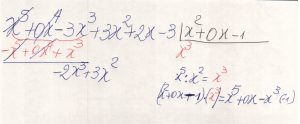 x⁵+0x⁴-3x³+3x²+2x-3 | x²+0x-1
-x⁵+0x⁴+x³ x³
-2x³+3x²
x⁵:x²=x³
(x²+0x-1)(x³)=x⁵+0x-x³(-1)